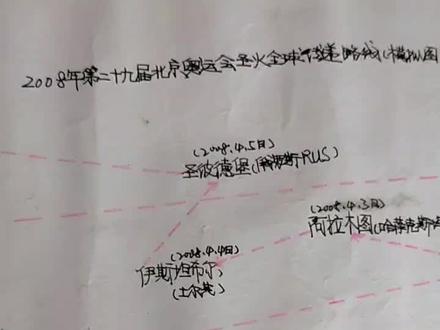 2008年第二十九届北京奥运会圣火全球传递路线(模拟图
(2008.4.5日)
圣彼德堡(俄罗斯RUS)
(2008.4.3日)
阿拉木图(哈萨克斯
(2008.4.4日)
伊斯坦布尔
(土耳其)